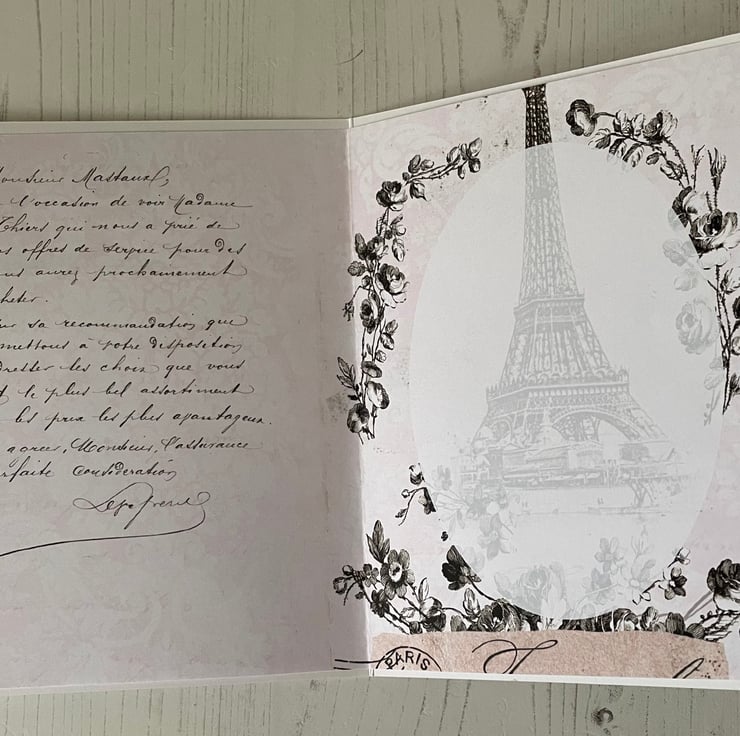 Monsieur Mastaux,
l'occasion de voir Madame
Thiers qui nous a prié de
offres de service pour des
aurez prochainement
heter.
sa recommandation que
mettons à votre disposition
dresser les choix que vous
le plus bel assortiment
les prix les plus avantageux.
agréer, Monsieur, l'assurance
rfaite considération
PARIS